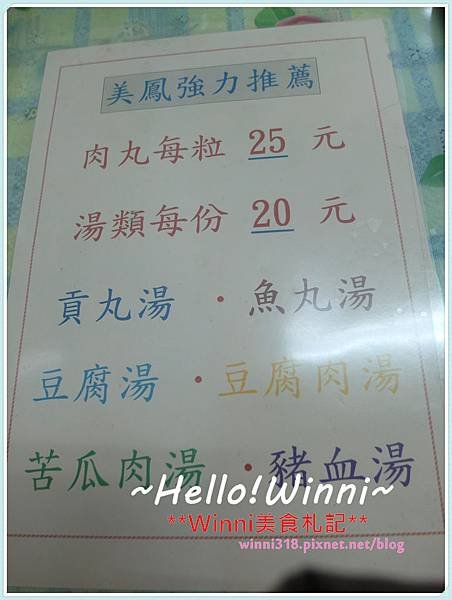 美鳳強力推薦
肉丸每粒 25 元
湯類每份 20 元
貢丸湯 · 魚丸湯
豆腐湯 · 豆腐肉湯
苦瓜肉湯 · 豬血湯
~Hello!Winni~
**Winni美食札記**
winni318.pixnet.net/blog